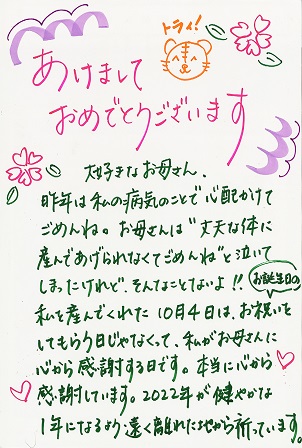 トライ!
あけまして
おめでとうございます
大好きなお母さん、
昨年は私の病気のことで心配かけて
ごめんね。お母さんは"丈夫な体に
産んであげられなくてごめんね"と泣いて
しまったけれど、そんなことないよ!!
お誕生日の
私を産んでくれた10月4日は、お祝いを
してもらう日じゃなくって、私がお母さんに
心から感謝する日です。本当に心から
感謝しています。2022年が健やかな
1年になるよう、遠く離れた地から祈っています。